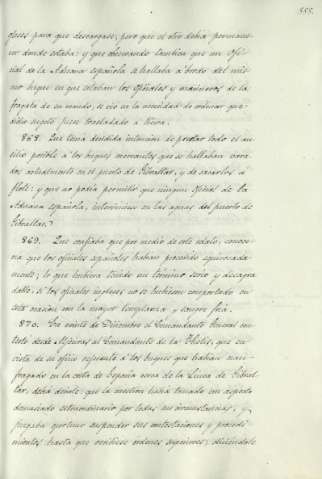 555.
oficios para que descargase; pero que el otro debía permanecer
donde estaba: y que observando también que un Ofi-
cial de la Aduana española se hallaba á bordo del mis-
mo buque en que estaban los oficiales y marineros de la
fragata de su mando, se vio en la necesidad de ordenar que
dicho sugeto fuese trasladado a tierra.
868. Que tenía decidida intención de prestar todo el au-
xilio posible á los buques mercantes que se hallaban vara-
dos actualmente en el puerto de Gibraltar, y de sacarlos á
flote: y que no podía permitir que ningún oficial de la
Aduana española, interviniese en las aguas del puerto de
Gibraltar.
869. Que confiaba que por medio de este relato, conoce-
ría que los oficiales españoles habían procedido equivocada-
mente; lo que hubiera tenido un término serio y desagra-
dable, si los oficiales ingleses no se hubiesen comportado en
esta ocasión con la mayor templanza y sangre fría.
870. En veinte de Diciembre el Comandante General con-
testó desde Algeciras al Comandante de la Thetis, que en
vista de su oficio referente á los buques que habían nau-
fragado en la costa de España cerca de la Línea de Gibral-
tar, debía decirle: que la cuestión había tomado un aspecto
demasiado extraordinario por todas sus circunstancias, y
juzgaba oportuno suspender sus contestaciones y procedi-
mientos hasta que recibiese órdenes superiores: diciéndole